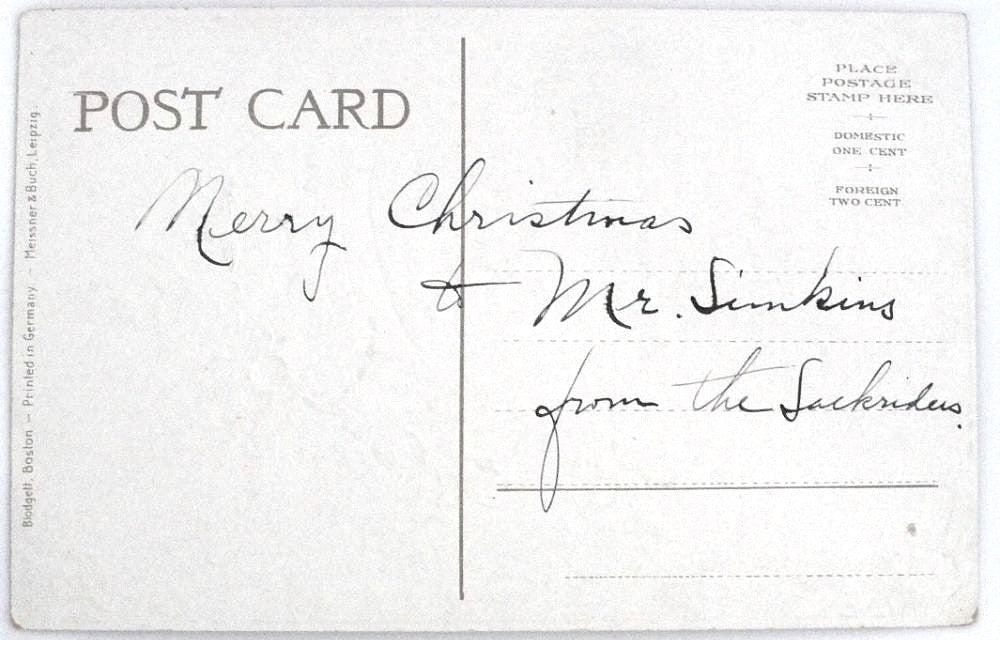 POST CARD
PLACE
POSTAGE
STAMP HERE
DOMESTIC
ONE CENT
FOREIGN
TWO CENT
Merry Christmas
to Mr. Simkins
from the Sackriders.
Blodgett, Boston – Printed in Germany – Meissner & Buch, Leipzig.